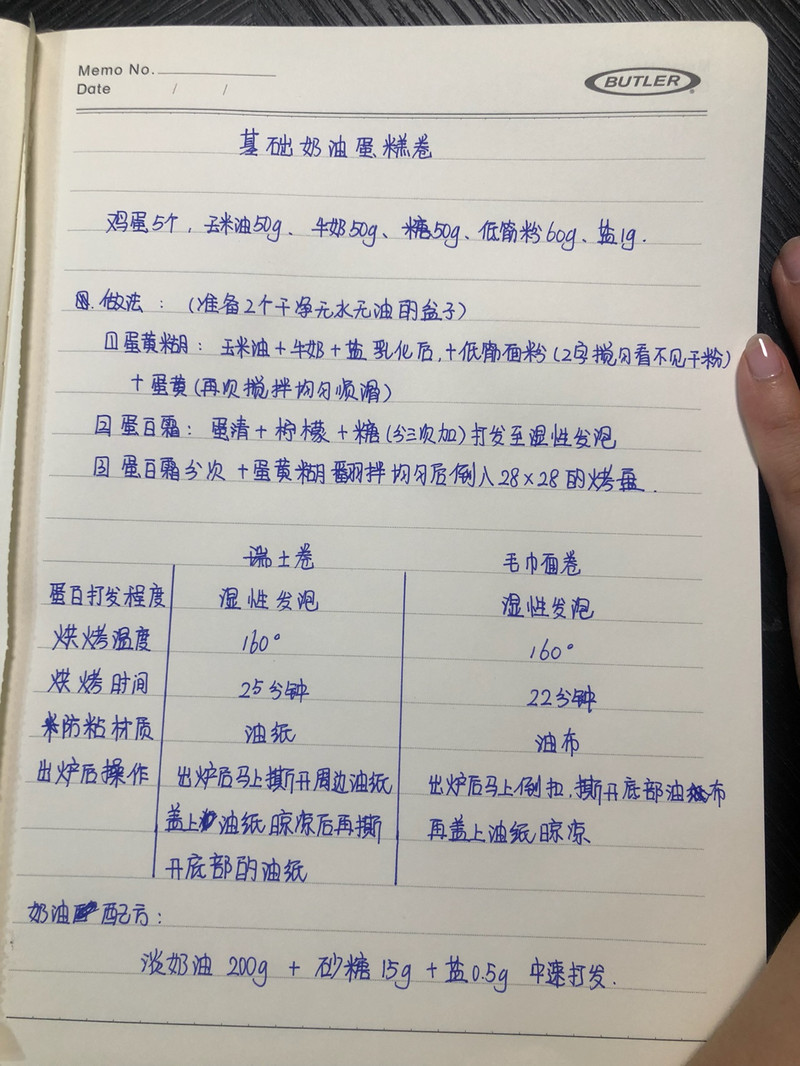 Memo No.
Date / /
BUTLER
基础奶油蛋糕卷
鸡蛋5个，玉米油50g、牛奶50g、糖50g、低筋粉60g、盐1g.
做法：（准备2个干净无水无油的盆子）
①蛋黄糊：玉米油+牛奶+盐 乳化后,+低筋面粉(Z字搅匀看不见干粉)
+蛋黄(再次搅拌均匀顺滑)
②蛋白霜：蛋清+柠檬+糖(分三次加)打发至湿性发泡
③蛋白霜分次+蛋黄糊翻拌均匀后倒入28×28的烤盘.
瑞士卷 毛巾面卷
蛋白打发程度 湿性发泡 湿性发泡
烘烤温度 160° 160°
烘烤时间 25分钟 22分钟
防粘材质 油纸 油布
出炉后操作 出炉后马上撕开周边油纸 出炉后马上倒扣.撕开底部油布
盖上油纸晾凉后再撕 再盖上油纸晾凉
开底部的油纸
奶油配方：
淡奶油 200g + 砂糖 15g + 盐0.5g 中速打发.